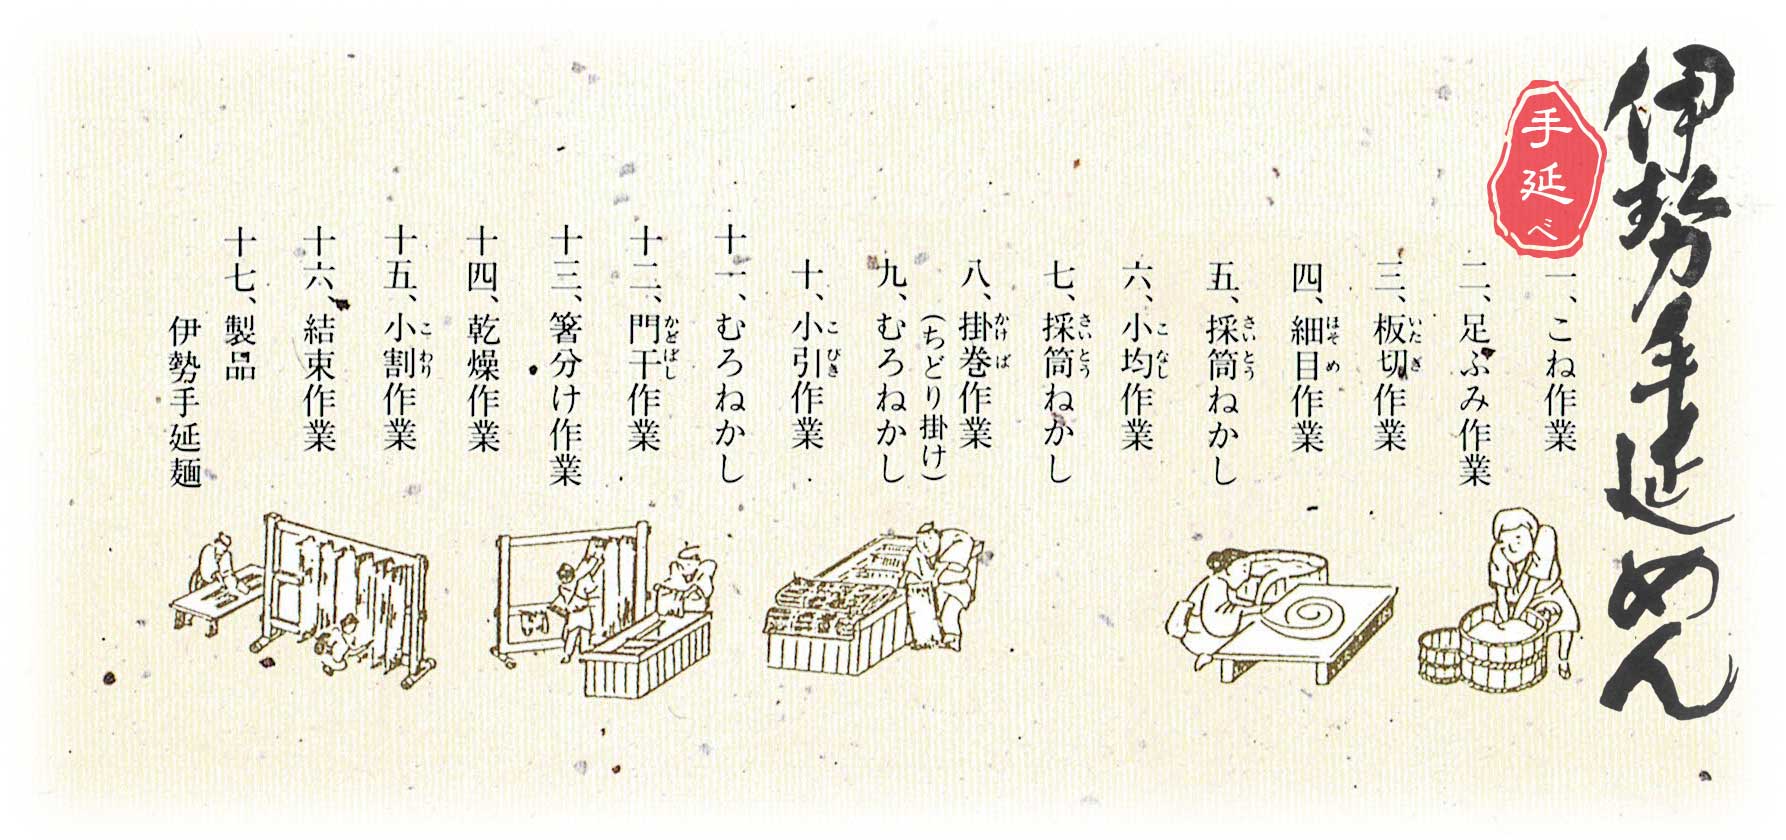 伊勢手延めん
手延べ
一、こね作業
二、足ぶみ作業
三、板切作業
いたぎ
四、細目作業
ほそめ
五、採筒ねかし
さいとう
六、小均作業
こなし
七、採筒ねかし
さいとう
八、掛巻作業
かけば
（ちどり掛け）
九、むろねかし
十、小引作業
こびき
十一、むろねかし
十二、門干作業
かどぼし
十三、箸分け作業
十四、乾燥作業
十五、小割作業
こわり
十六、結束作業
十七、製品
伊勢手延麺